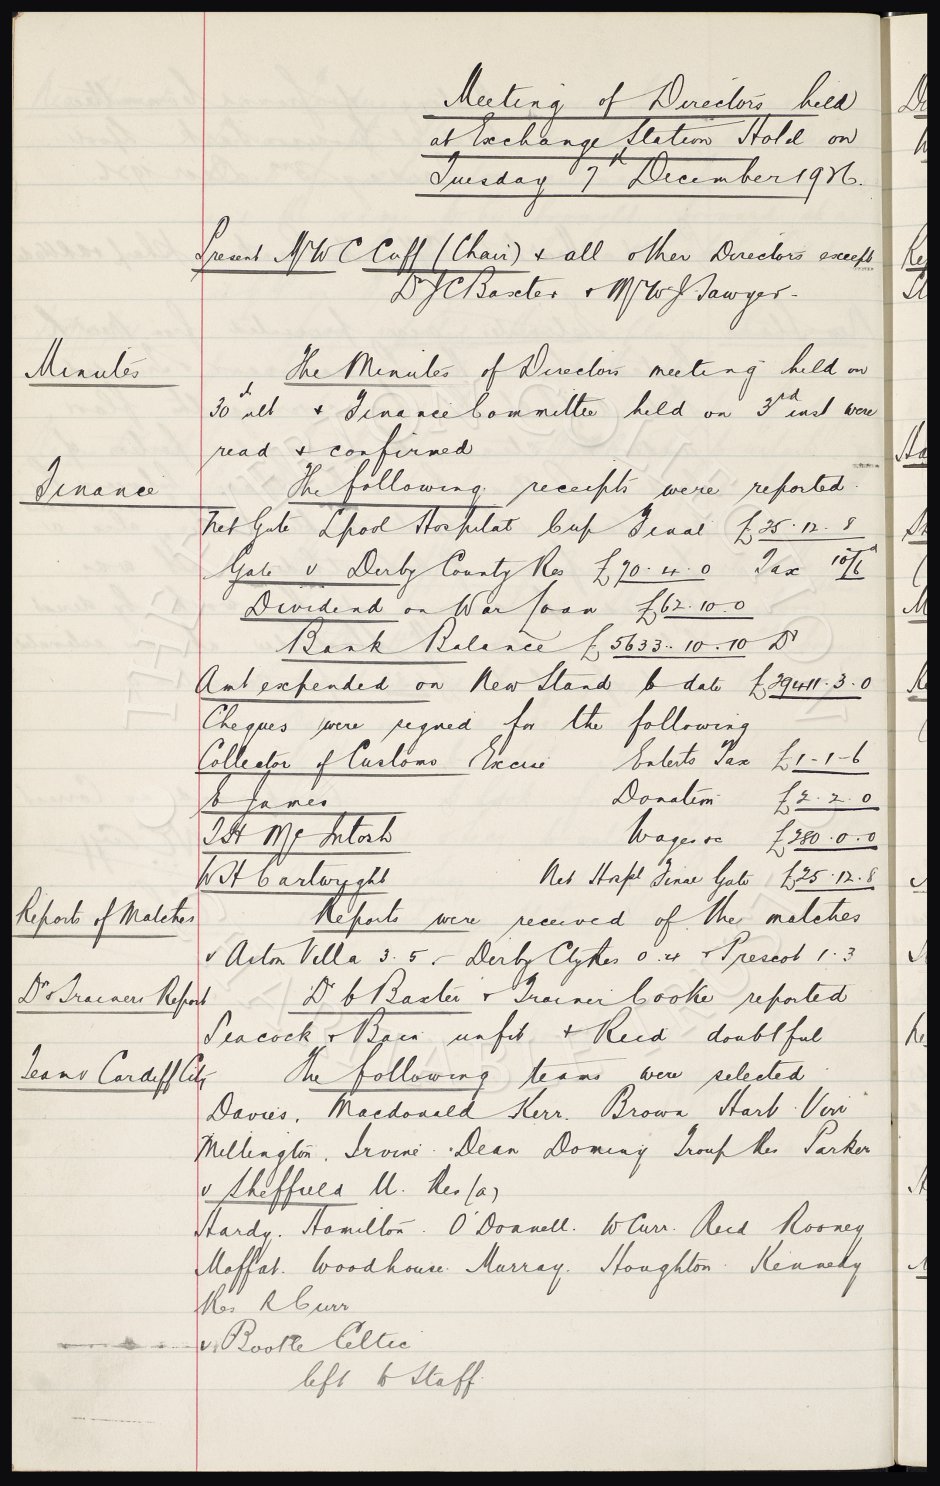 Meeting of Directors held
at Exchange Station Hotel on
Tuesday 7th December 1926.
Present Mr W C Cuff (Chair) & all other Directors except
Dr J C Baxter & Mr W J Sawyer -
Minutes The Minutes of Directors meeting held on
30th ult & Finance Committee held on 3rd inst were
read & confirmed
Finance The following receipts were reported.
Net Gate Lpool Hospital Cup Final £25.12.8
Gate v Derby County Res £70.4.0 Tax 10/6d
Dividend on War Loan £62.10.0
Bank Balance £5633.10.10 Dr
Amt expended on New Stand to date £29411.3.0
Cheques were signed for the following
Collector of Customs Excise Enterts Tax £1-1-6
E James Donation £2.2.0
T H McIntosh Wages &c £280.0.0
W H Cartwright Net Hospl Final Gate £25.12.8
Reports of Matches Reports were received of the matches
v Aston Villa 3.5. - Derby Cty Res 0.4 & Prescot 1.3
Dr & Trainers Report Dr C Baxter & Trainer Cooke reported
Peacock & Bain unfit & Reid doubtful
Team v Cardiff City The following teams were selected
Davies. Macdonald Kerr. Brown Hart. Virr
Millington. Irvine. Dean Dominy Troup Res Parker
v Sheffield U. Res (a)
Hardy. Hamilton. O'Donnell. W Curr. Reid Rooney
Moffat. Woodhouse. Murray. Houghton. Kennedy
Res R Curr
v. Bootle Celtic
left to Staff